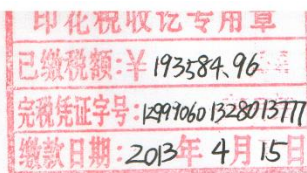 印花税收讫专用章
已缴税额:￥193584.96
完税凭证字号:129990601328013777
缴款日期:2013年4月15日